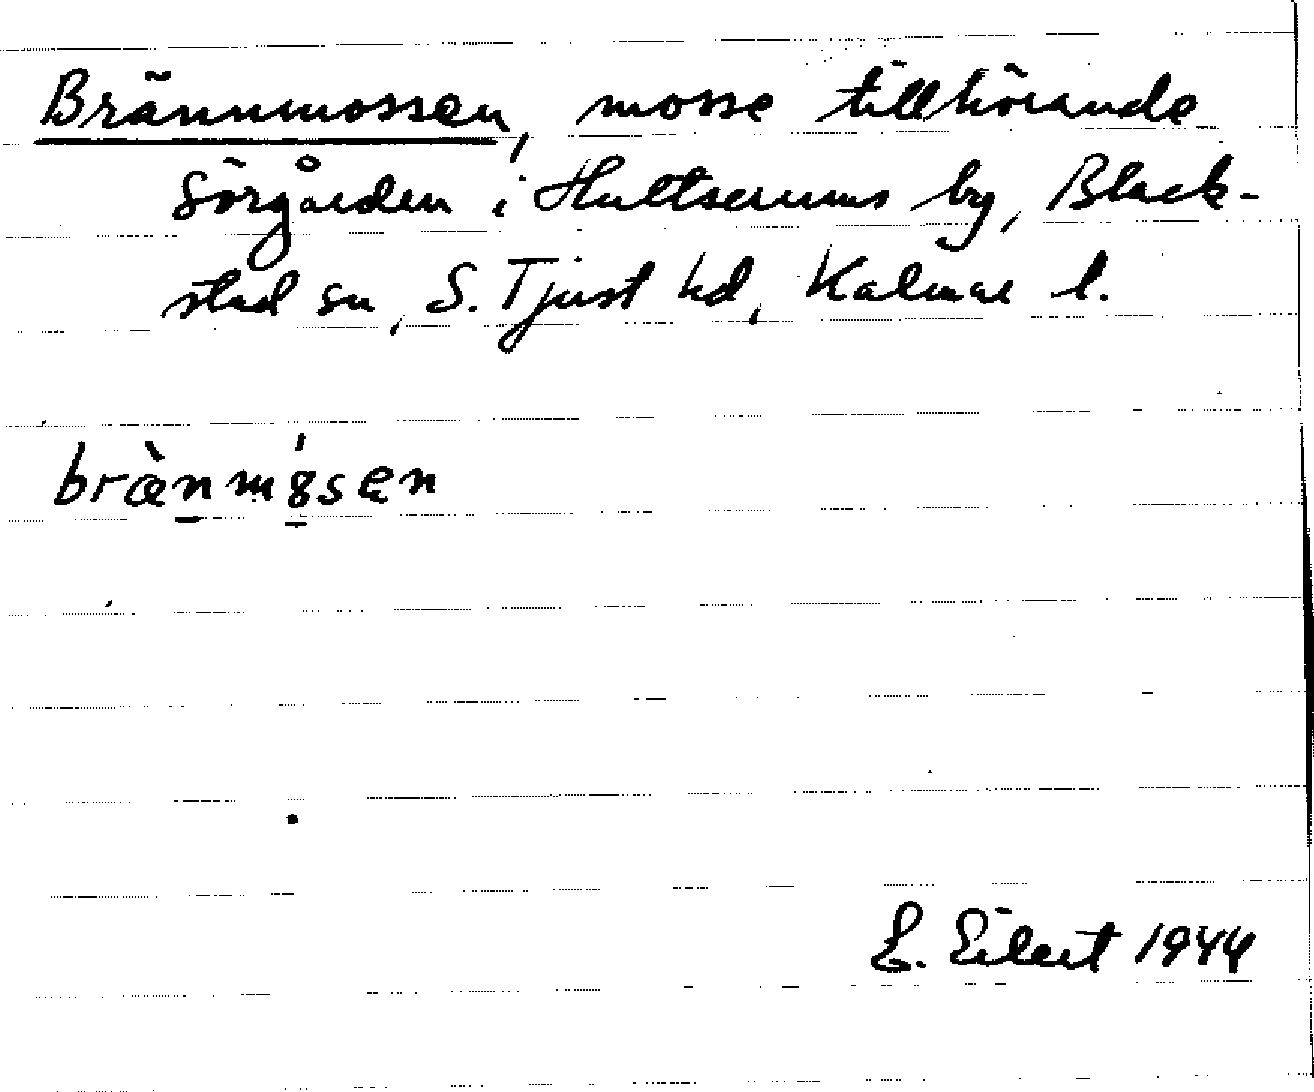 Brännmossen, mosse tillhörande
Sörgården i Hultserums by, Black-
stad sn, S. Tjust hd, Kalmar l.
brὰn̲mó̲sen
E. Eilert 1944